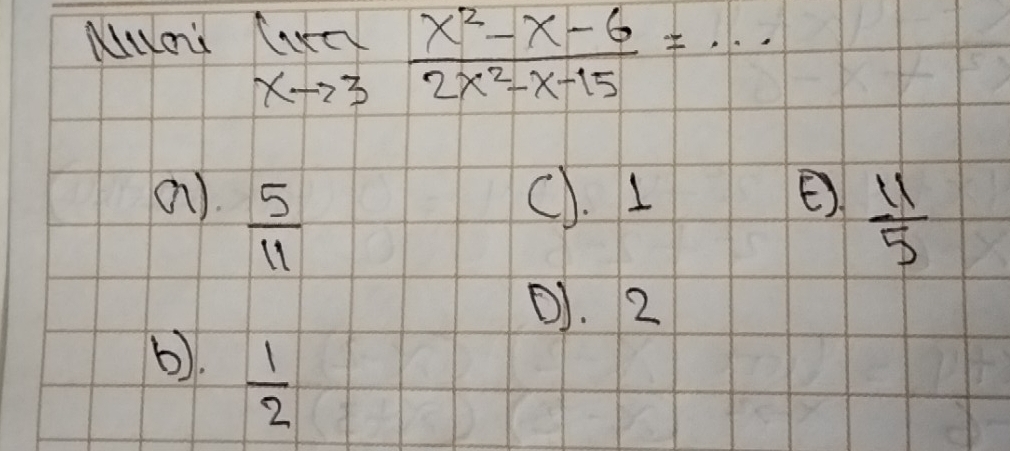 Nilai lim x→3 (x² - x - 6)/(2x² - x - 15) = ...
a). 5/11 C). 1 E). 11/5
D). 2
b). 1/2